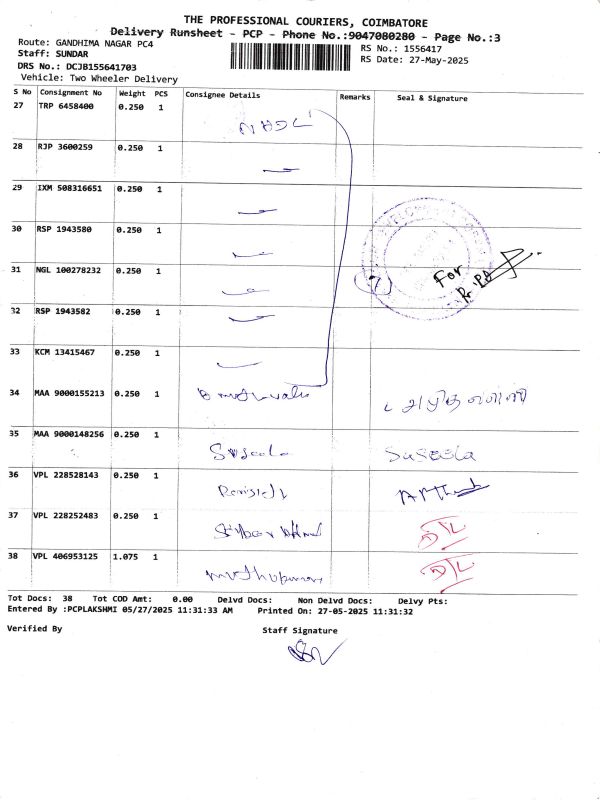 THE PROFESSIONAL COURIERS, COIMBATORE
Delivery Runsheet - PCP - Phone No.:9047080280 - Page No.:3
Route: GANDHIMA NAGAR PC4
RS No.: 1556417
Staff: SUNDAR
RS Date: 27-May-2025
DRS No.: DCJB155641703
Vehicle: Two Wheeler Delivery
S No Consignment No Weight PCS Consignee Details Remarks Seal & Signature
27 TRP 6458400 0.250 1
28 RJP 3600259 0.250 1
29 IXM 508316651 0.250 1
30 RSP 1943580 0.250 1
31 NGL 100278232 0.250 1
For
32 RSP 1943582 0.250 1
33 KCM 13415467 0.250 1
34 MAA 9000155213 0.250 1
35 MAA 9000148256 0.250 1 Suseela Suseela
36 VPL 228528143 0.250 1
37 VPL 228252483 0.250 1
38 VPL 406953125 1.075 1
Tot Docs: 38 Tot COD Amt: 0.00 Delvd Docs: Non Delvd Docs: Delvy Pts:
Entered By :PCPLAKSHMI 05/27/2025 11:31:33 AM Printed On: 27-05-2025 11:31:32
Verified By Staff Signature